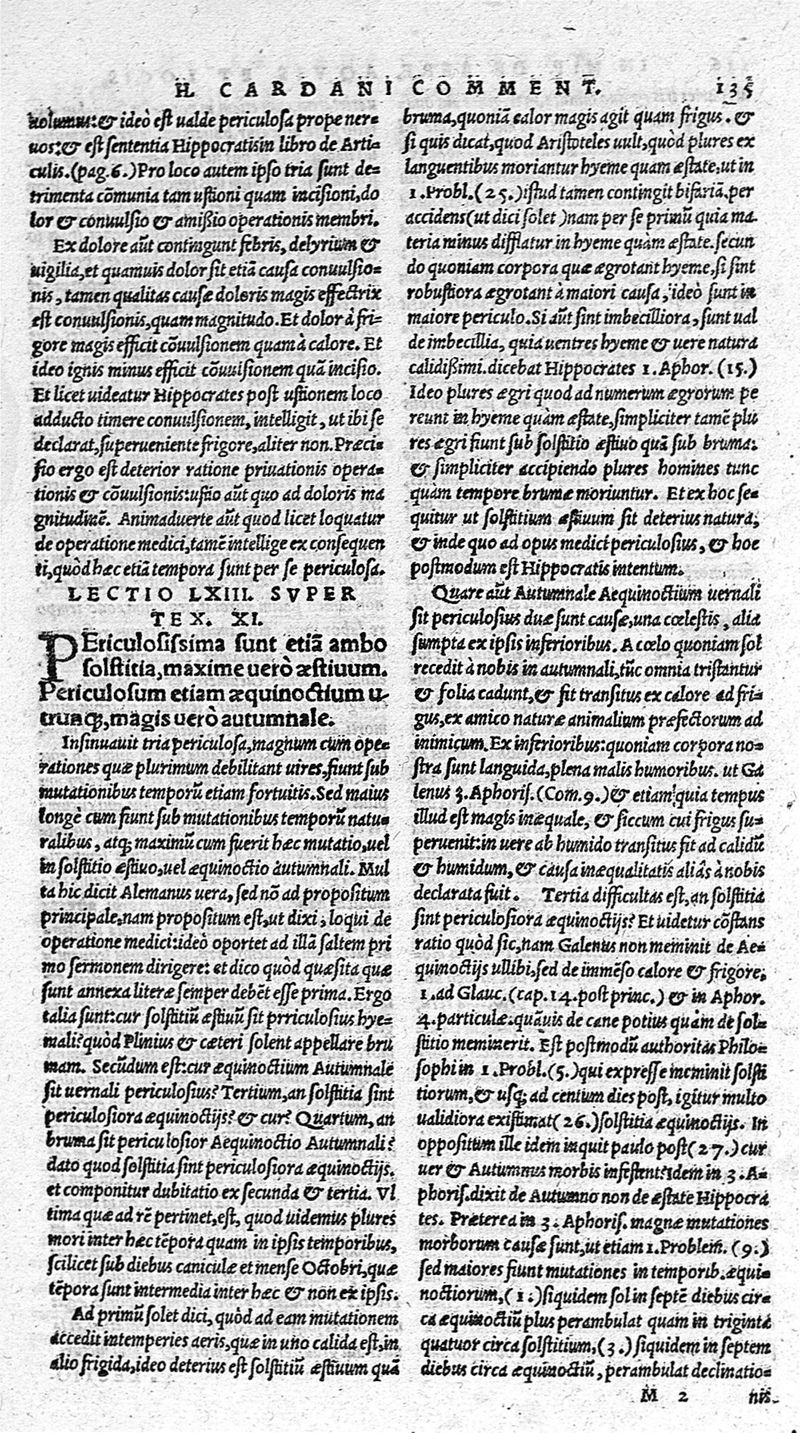 H. CARDANI COMMENT. 135
uolumus:& ideò est ualde periculosa prope ner-
uos:& est sententia Hippocratis in libro de Arti-
culis.(pag.6.)Pro loco autem ipso tria sunt de-
trimenta cõmunia tam ustioni quam incisioni,do
lor & conuulsio & amißio operationis membri.
Ex dolore aũt contingunt febris, delyrium &
uigilia,et quamuis dolor sit etiã causa conuulsio-
nis, tamen qualitas causæ doloris magis effectrix
est conuulsionis,quam magnitudo.Et dolor à fri-
gore magis efficit cõuulsionem quam à calore. Et
ideo ignis minus efficit cõuulsionem quã incisio.
Et licet uideatur Hippocrates post ustionem loco
adducto timere conuulsionem, intelligit, ut ibi se
declarat,superueniente frigore,aliter non.Præci-
sio ergo est deterior ratione priuationis opera-
tionis & cõuulsionis:ustio aũt quo ad doloris ma
gnitudinẽ. Animaduerte aũt quod licet loquatur
de operatione medici,tamẽ intellige ex consequen
ti,quòd hæc etiã tempora sunt per se periculosa.
LECTIO LXIII. SVPER
TEX. XI.
PEriculosissima sunt etiã ambo
solstitia,maxime uerò æstiuum.
Periculosum etiam æquinoctium u-
trunq;,magis uerò autumnale.
Insinuauit tria periculosa,magnum cum ope-
rationes quæ plurimum debilitant uires,fiunt sub
mutationibus temporũ etiam fortuitis.Sed maius
longè cum fiunt sub mutationibus temporũ natu-
ralibus, atq; maximũ cum fuerit hæc mutatio,uel
in solstitio æstiuo,uel æquinoctio autumnali. Mul
ta hic dicit Alemanus uera, sed nõ ad propositum
principale,nam propositum est,ut dixi, loqui de
operatione medici:ideò oportet ad illã saltem pri
mo sermonem dirigere: et dico quòd quæsita quæ
sunt annexa literæ semper debẽt esse prima. Ergo
talia sunt:cur solstitiũ æstiuũ sit prriculosius hye-
mali?quòd Plinius & cæteri solent appellare bru
mam. Secũdum est:cur æquinoctium Autumnale
sit uernali periculosius? Tertium,an solstitia sint
periculosiora æquinoctijs? & cur? Quartum, an
bruma sit periculosior Aequinoctio Autumnali?
dato quod solstitia sint periculosiora æquinoctijs.
et componitur dubitatio ex secunda & tertia. Vl
tima quæ ad rẽ pertinet,est, quod uidemus plures
mori inter hæc tẽpora quam in ipsis temporibus,
scilicet sub diebus caniculæ et mense Octobri,quæ
tẽpora sunt intermedia inter hæc & non ex ipsis.
Ad primũ solet dici, quòd ad eam mutationem
accedit intemperies aeris,quæ in uno calida est,in
alio frigida,ideo deterius est solstitiũ æstiuum quã
bruma,quoniã calor magis agit quam frigus. &
si quis dicat,quod Aristoteles uult,quòd plures ex
languentibus moriantur hyeme quam æstate,ut in
1.Probl.(25.)istud tamen contingit bifariã.per
accidens(ut dici solet)nam per se primũ quia ma-
teria minus difflatur in hyeme quàm æstate.secun
do quoniam corpora quæ ægrotant hyeme,si sint
robustiora ægrotant à maiori causa, ideò sunt in
maiore periculo.Si aũt sint imbecilliora,sunt ual
de imbecillia, quia uentres hyeme & uere natura
calidißimi.dicebat Hippocrates 1.Aphor. (15.)
Ideo plures ægri quod ad numerum ægrorum pe
reunt in hyeme quàm æstate,simpliciter tamẽ plu
res ægri fiunt sub solstitio æstiuo quã sub bruma:
& simpliciter accipiendo plures homines tunc
quàm tempore brumæ moriuntur. Et ex hoc se-
quitur ut solstitium æstiuum sit deterius natura;
& inde quo ad opus medici periculosius, & hoc
postmodum est Hippocratis intentum.
Quare aũt Autumnale Aequinoctium uernali
sit periculosius duæ sunt causæ,una cœlestis, alia
sumpta ex ipsis inferioribus. A cœlo quoniam sol
recedit à nobis in autumnali,tũc omnia tristantur
& folia cadunt,& fit transitus ex calore ad fri-
gus,ex amico naturæ animalium præfectorum ad
inimicum.Ex inferioribus:quoniam corpora no-
stra sunt languida,plena malis humoribus. ut Ga
lenus 3.Aphoris.(Com.9.)& etiam quia tempus
illud est magis inæquale, & siccum cui frigus su-
peruenit:in uere ab humido transitus fit ad calidũ
& humidum, & causa inæqualitatis aliàs à nobis
declarata fuit. Tertia difficultas est,an solstitia
sint periculosiora æquinoctijs? Et uidetur cõstans
ratio quòd sic,nam Galenus non meminit de Ae-
quinoctijs ullibi,sed de immẽso calore & frigore,
1.ad Glauc.(cap.14.post princ.) & in Aphor.
4.particulæ.quãuis de cane potius quàm de sol-
stitio meminerit. Est postmodũ authoritas Philo-
sophi in 1.Probl.(5.)qui expresse meminit solsti
tiorum,& usq; ad centum dies post, igitur multo
ualidiora existimat(26.)solstitia æquinoctijs. In
oppositum ille idem inquit paulo post(27.)cur
uer & Autumnus morbis infestent?idem in 3.A-
phoris.dixit de Autumno non de æstate Hippocra
tes. Præterea in 3. Aphoris. magnæ mutationes
morborum causæ sunt,ut etiam 1.Problem̃. (9.)
sed maiores fiunt mutationes in temporib.æqui-
noctiorum,(1.)siquidem sol in septẽ diebus cir-
ca æquinoctiũ plus perambulat quam in trigintá
quatuor circa solstitium,(3.)siquidem in septem
diebus circa æquinoctiũ, perambulat declinatio-
M 2 nis.